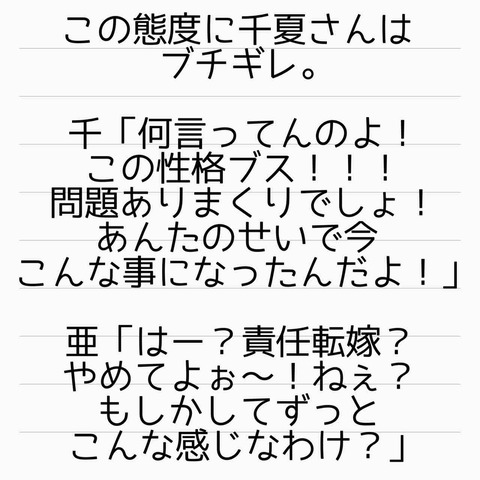 この態度に千夏さんは
ブチギレ。
千「何言ってんのよ！
この性格ブス！！！
問題ありまくりでしょ！
あんたのせいで今
こんな事になったんだよ！」
亜「はー？責任転嫁？
やめてよぉ〜！ねぇ？
もしかしてずっと
こんな感じなわけ？」